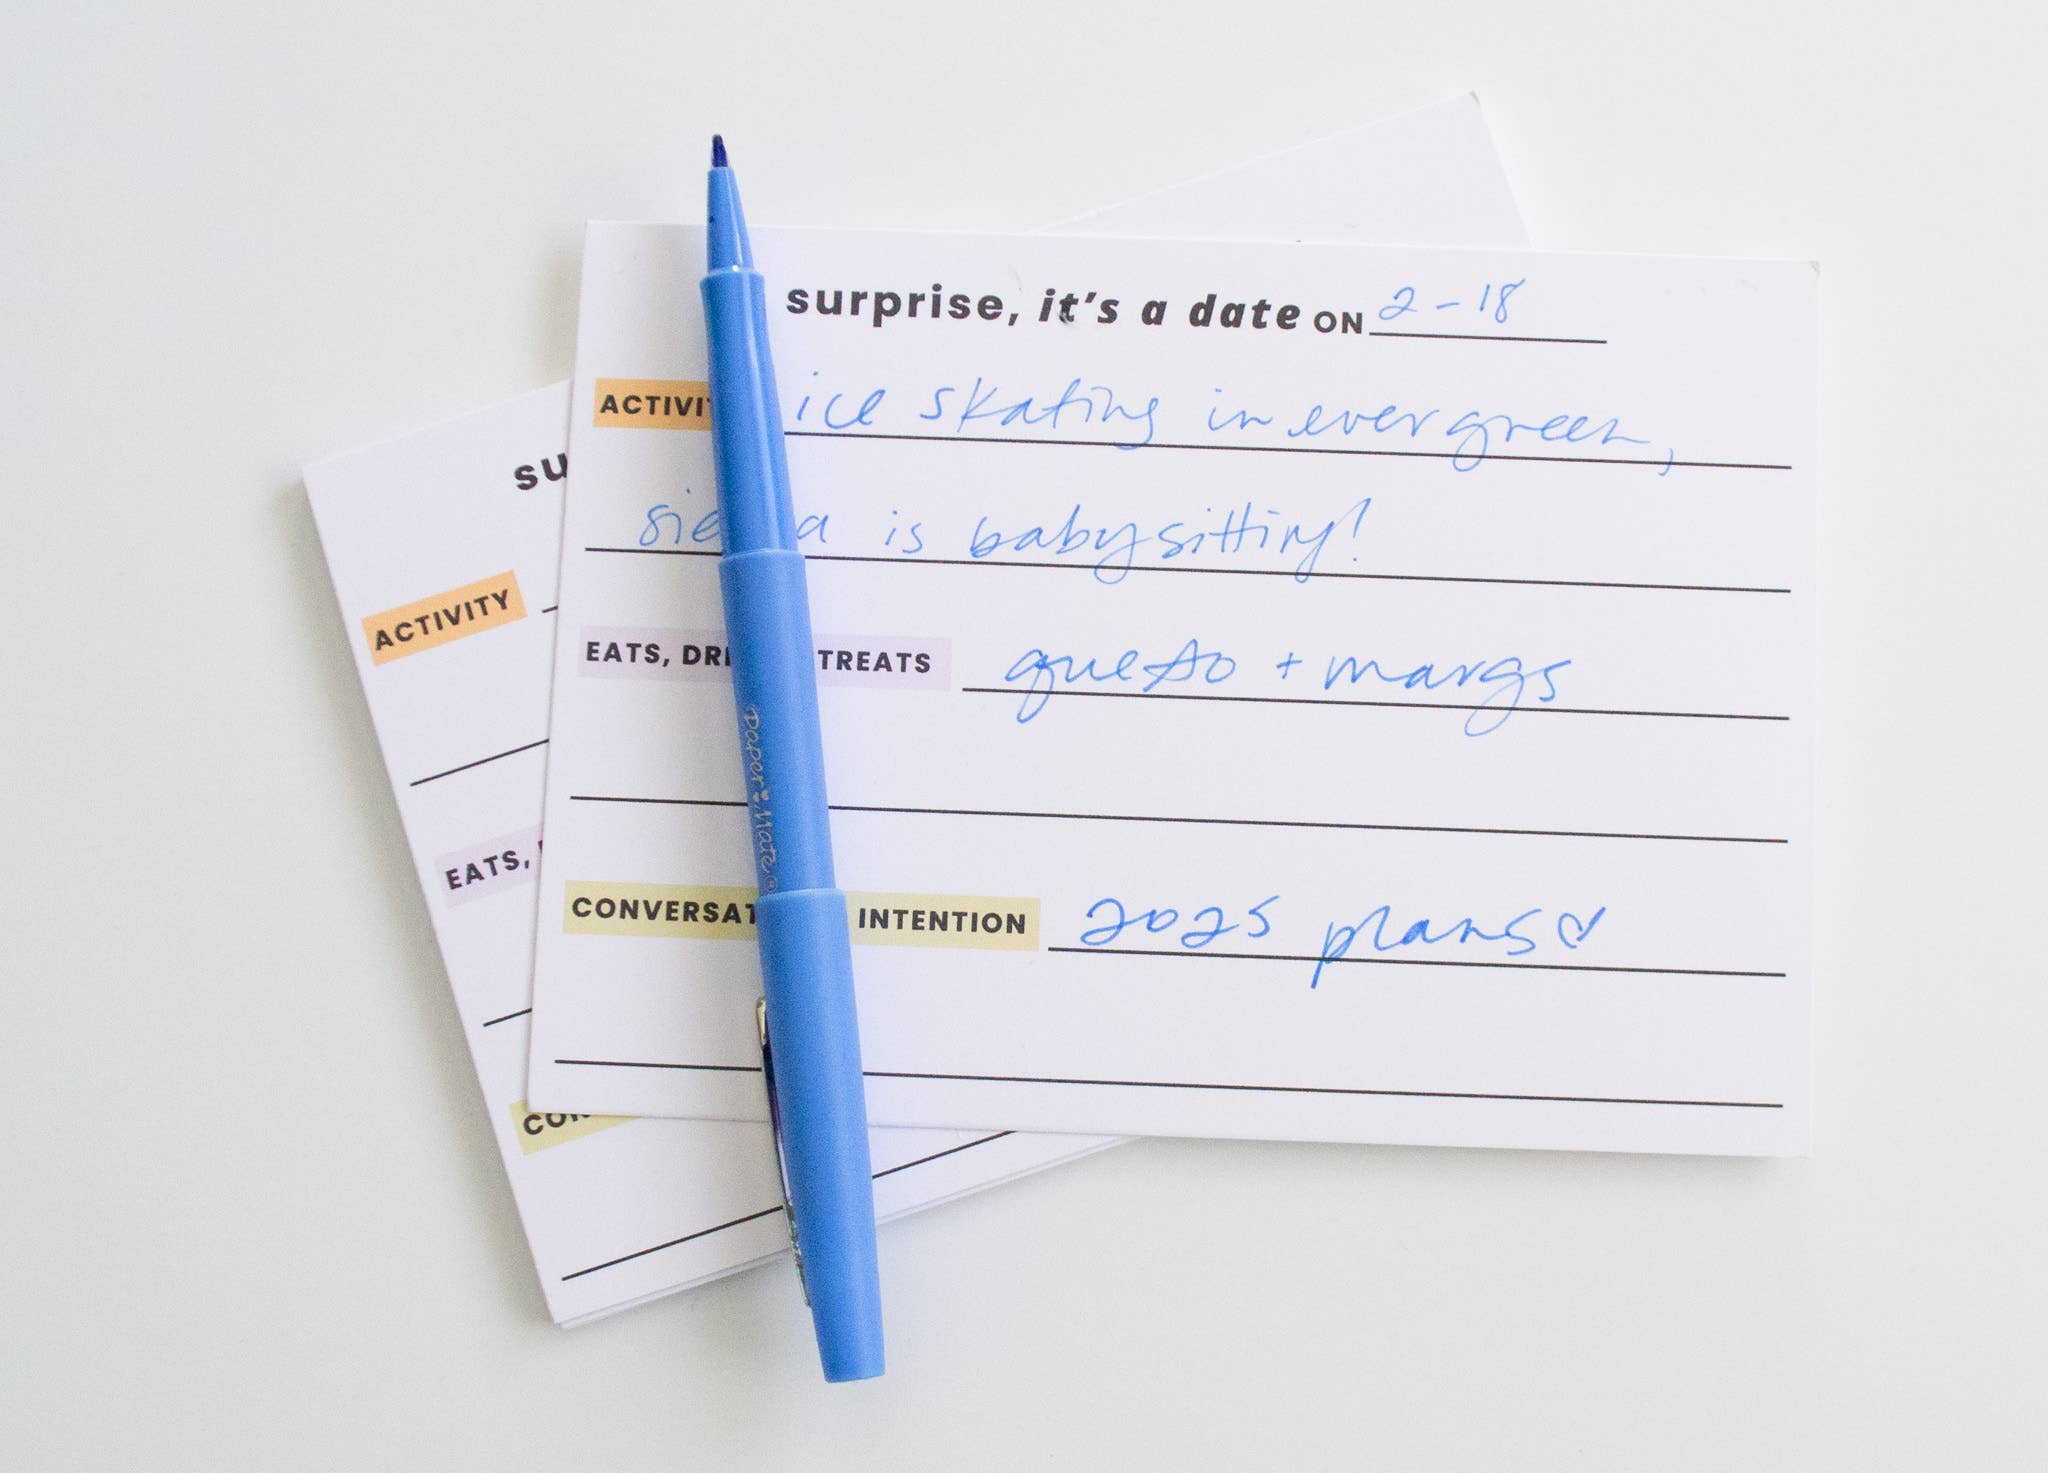 surprise, it's a date ON 2-18
ACTIVI ice skating in evergreen,
sie a is babysitting!
EATS, DRI TREATS queso + margs
CONVERSAT INTENTION 2025 plans♡
su
ACTIVITY
EATS,
CON
Paper Mate®